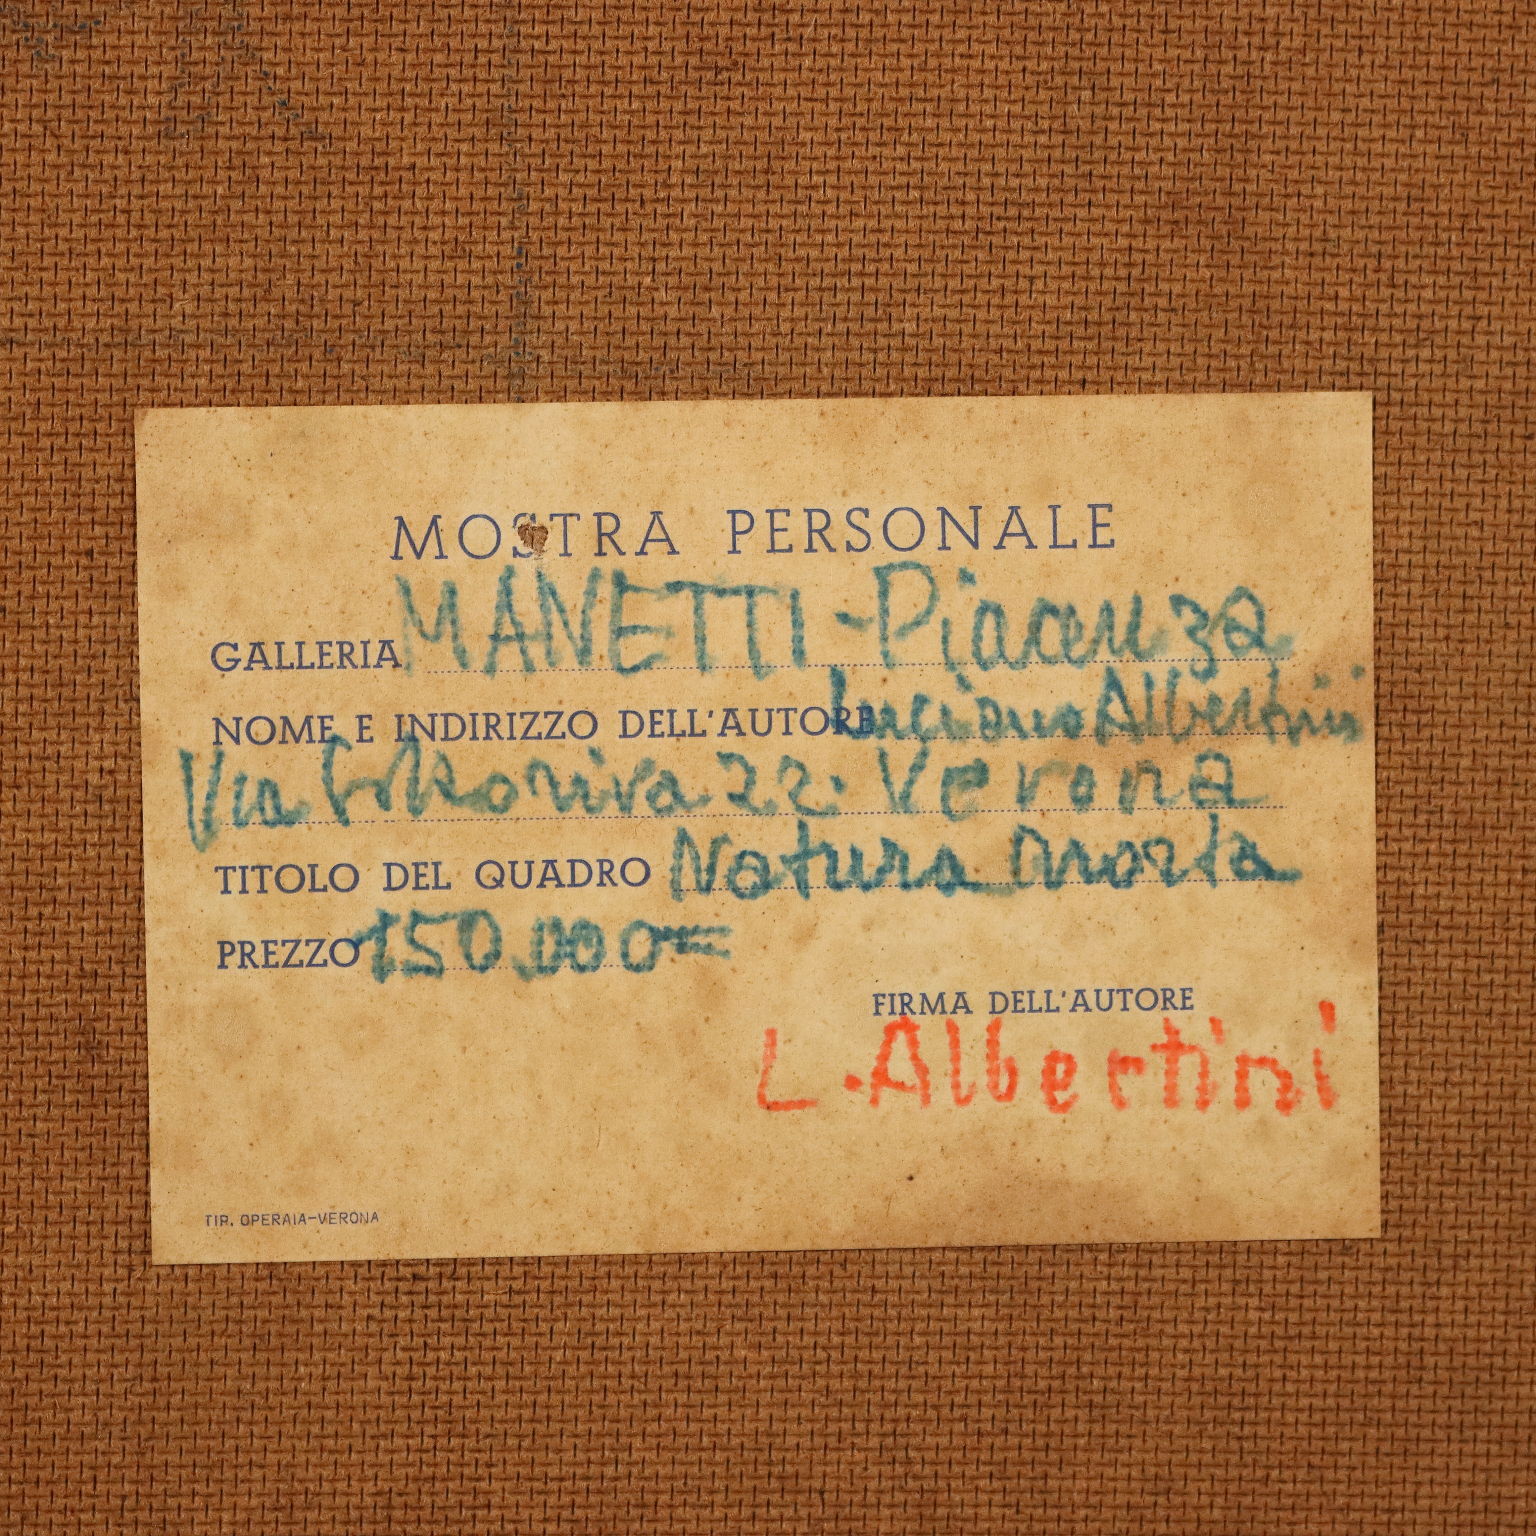 MOSTRA PERSONALE
GALLERIA MANETTI - Piacenza
NOME E INDIRIZZO DELL'AUTORE Luciano Albertini
Via 22. Verona
TITOLO DEL QUADRO Natura morta
PREZZO 150.000=
FIRMA DELL'AUTORE
L. Albertini
TIP. OPERAIA-VERONA